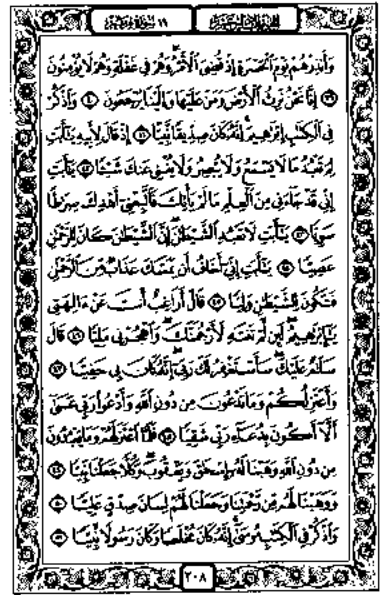 ١٩ سورة مريم
وَأَنذِرْهُمْ يَوْمَ الْحَسْرَةِ إِذْ قُضِيَ الْأَمْرُ وَهُمْ فِي غَفْلَةٍ وَهُمْ لَا يُؤْمِنُونَ
٣٩ إِنَّا نَحْنُ نَرِثُ الْأَرْضَ وَمَنْ عَلَيْهَا وَإِلَيْنَا يُرْجَعُونَ ٤٠ وَاذْكُرْ
فِي الْكِتَابِ إِبْرَاهِيمَ إِنَّهُ كَانَ صِدِّيقًا نَّبِيًّا ٤١ إِذْ قَالَ لِأَبِيهِ يَا أَبَتِ
لِمَ تَعْبُدُ مَا لَا يَسْمَعُ وَلَا يُبْصِرُ وَلَا يُغْنِي عَنكَ شَيْئًا ٤٢ يَا أَبَتِ
إِنِّي قَدْ جَاءَنِي مِنَ الْعِلْمِ مَا لَمْ يَأْتِكَ فَاتَّبِعْنِي أَهْدِكَ صِرَاطًا
سَوِيًّا ٤٣ يَا أَبَتِ لَا تَعْبُدِ الشَّيْطَانَ إِنَّ الشَّيْطَانَ كَانَ لِلرَّحْمَٰنِ
عَصِيًّا ٤٤ يَا أَبَتِ إِنِّي أَخَافُ أَن يَمَسَّكَ عَذَابٌ مِّنَ الرَّحْمَٰنِ
فَتَكُونَ لِلشَّيْطَانِ وَلِيًّا ٤٥ قَالَ أَرَاغِبٌ أَنتَ عَنْ آلِهَتِي
يَا إِبْرَاهِيمُ لَئِن لَّمْ تَنتَهِ لَأَرْجُمَنَّكَ وَاهْجُرْنِي مَلِيًّا ٤٦ قَالَ
سَلَامٌ عَلَيْكَ سَأَسْتَغْفِرُ لَكَ رَبِّي إِنَّهُ كَانَ بِي حَفِيًّا ٤٧
وَأَعْتَزِلُكُمْ وَمَا تَدْعُونَ مِن دُونِ اللَّهِ وَأَدْعُو رَبِّي عَسَىٰ
أَلَّا أَكُونَ بِدُعَاءِ رَبِّي شَقِيًّا ٤٨ فَلَمَّا اعْتَزَلَهُمْ وَمَا يَعْبُدُونَ
مِن دُونِ اللَّهِ وَهَبْنَا لَهُ إِسْحَاقَ وَيَعْقُوبَ وَكُلًّا جَعَلْنَا نَبِيًّا ٤٩
وَوَهَبْنَا لَهُم مِّن رَّحْمَتِنَا وَجَعَلْنَا لَهُمْ لِسَانَ صِدْقٍ عَلِيًّا ٥٠
وَاذْكُرْ فِي الْكِتَابِ مُوسَىٰ إِنَّهُ كَانَ مُخْلَصًا وَكَانَ رَسُولًا نَّبِيًّا ٥١
٣٠٨